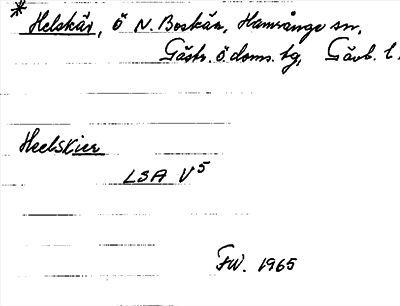 * Helskär, ö N. Boskär, Hamrånge sn,
Gästr. ö. doms. tg, Gävb. l.
Heelskier
LSA V5
FW. 1965